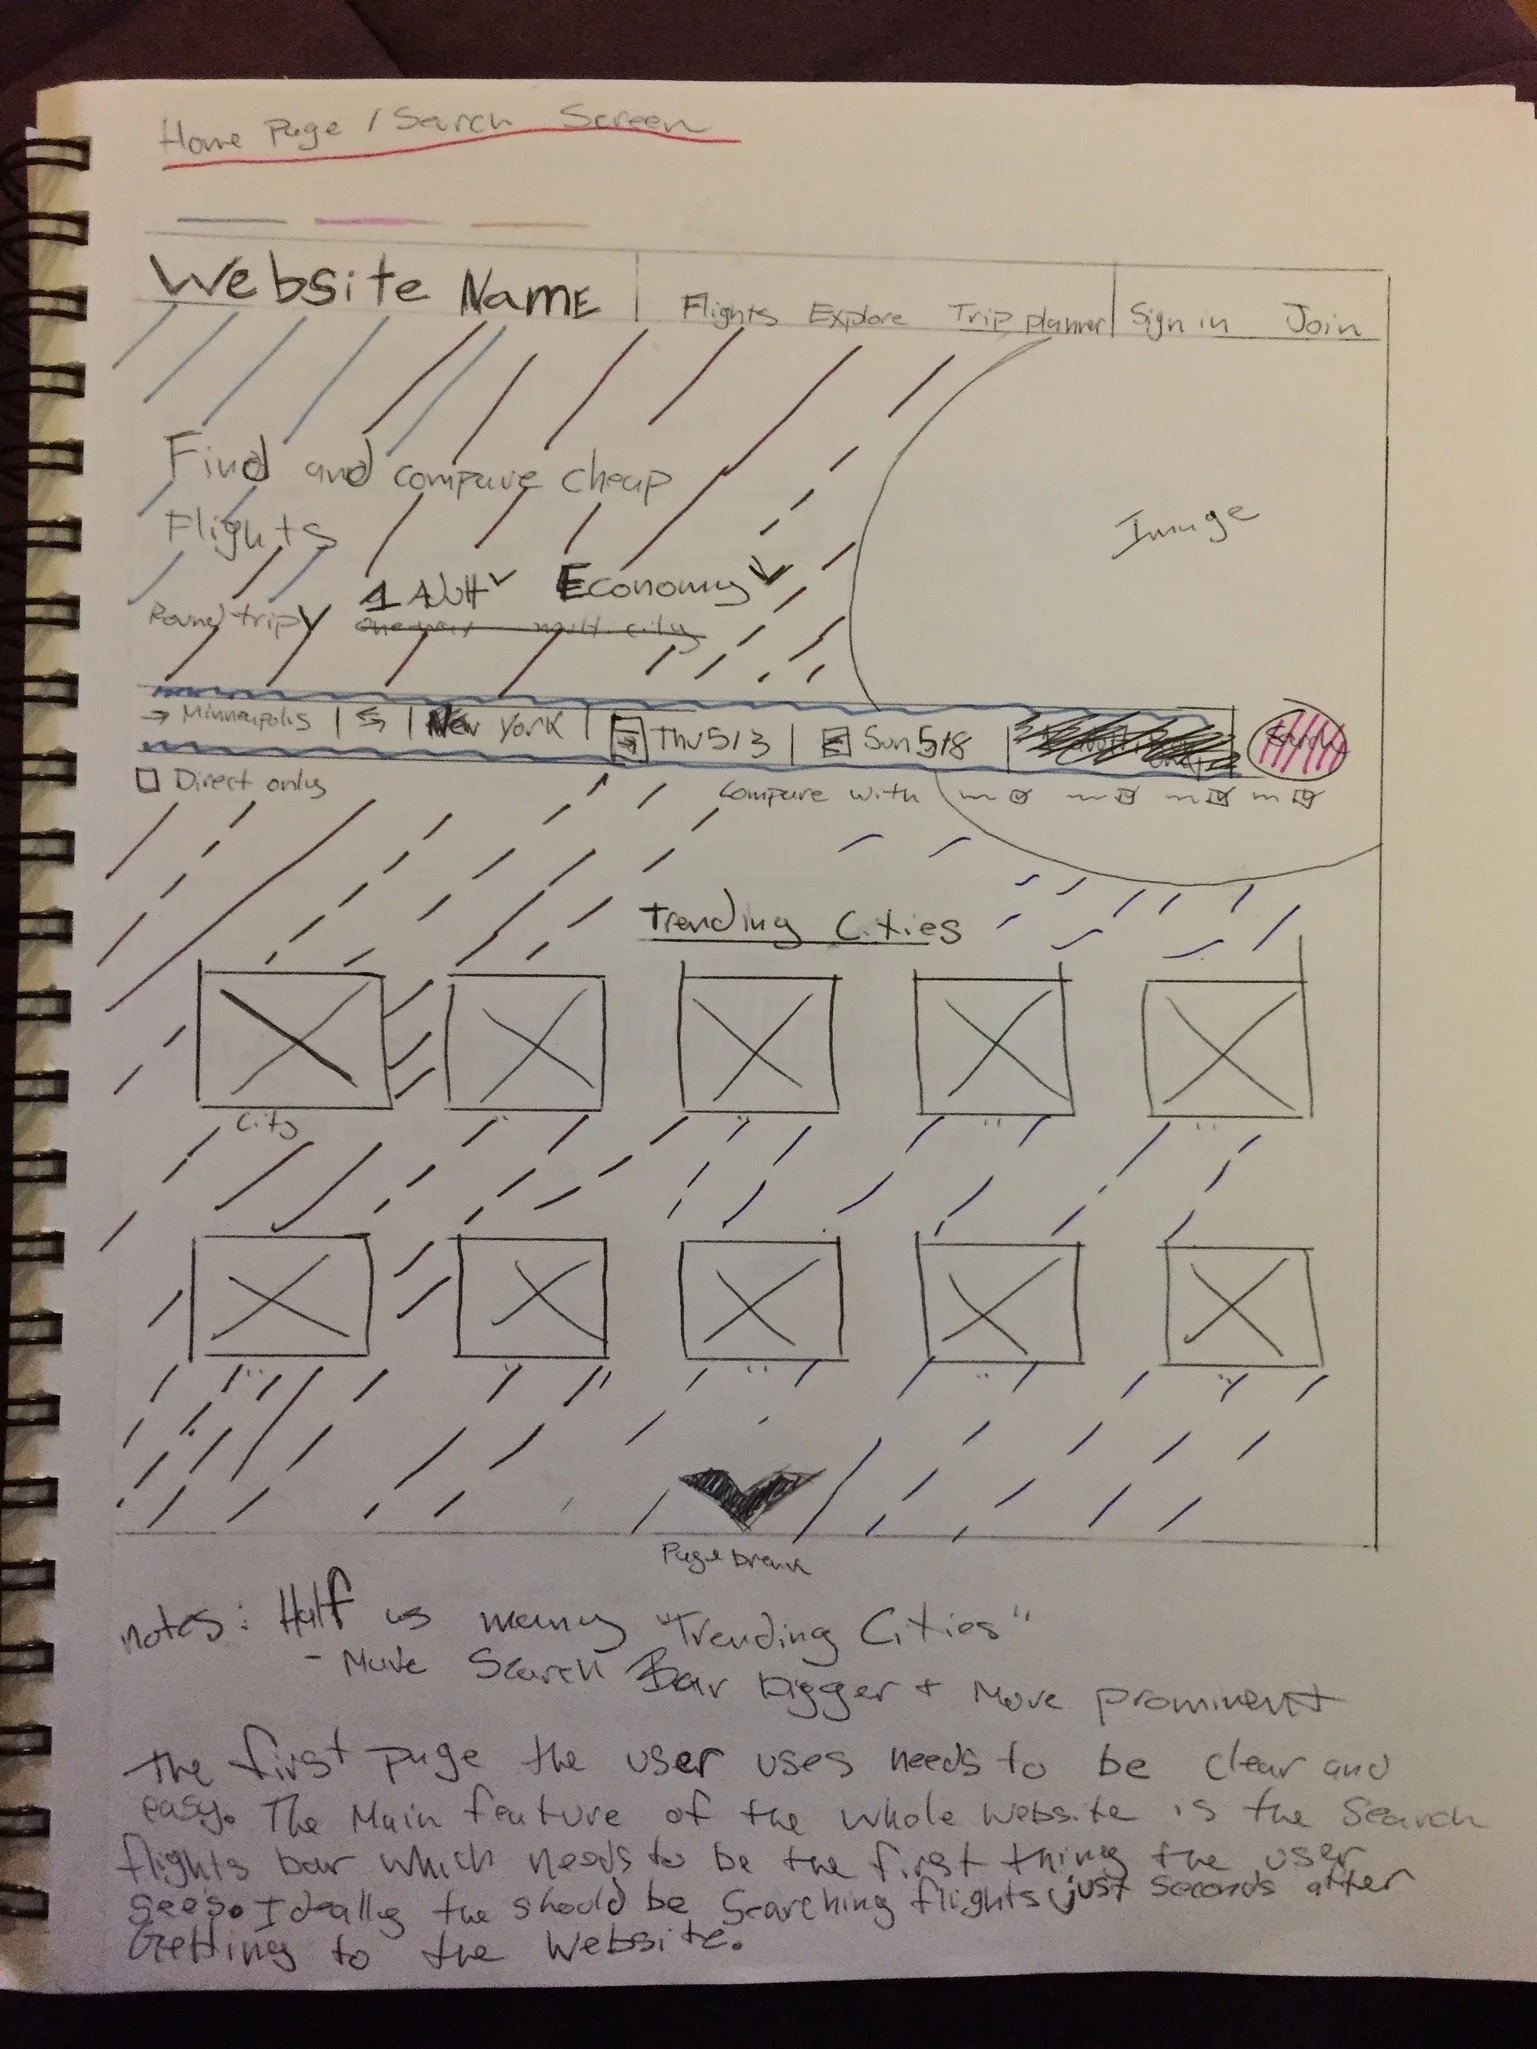 Home Page / Search Screen
Website Name
Flights Explore Trip planner Sign in Join
Find and compare cheap
Flights
Image
Round trip 1 Adult Economy
one way multi city
→ Minneapolis | ⇆ | New York | → Thu 5/3 | ← Sun 5/8 Search
Direct only
Compare with
Trending Cities
City
" " " "
" " " " "
Page break
notes: Half as many "Trending Cities"
- Make Search Bar bigger + More prominent
The first page the user uses needs to be clear and
easy. The Main feature of the whole website is the Search
flights bar which needs to be the first thing the user
sees. Ideally the should be Searching flights just seconds after
Getting to the Website.